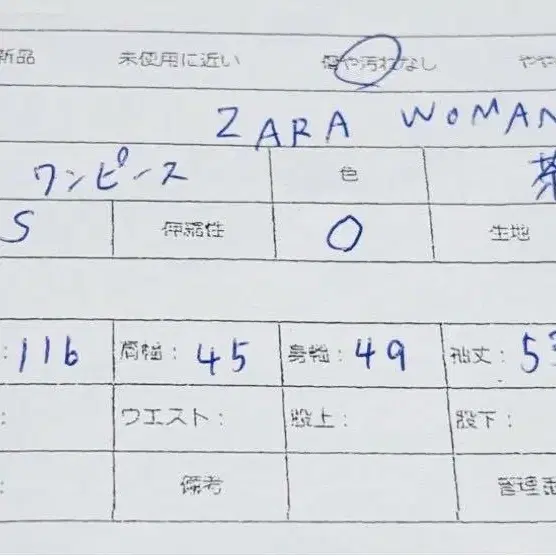 新品 未使用に近い 傷や汚れなし やや
ZARA WOMAN
ワンピース 色 茶
S 伸縮性 O 生地
: 116 肩幅: 45 身幅: 49 袖丈: 53
: ウエスト: 股上: 股下:
: 備考 管理番